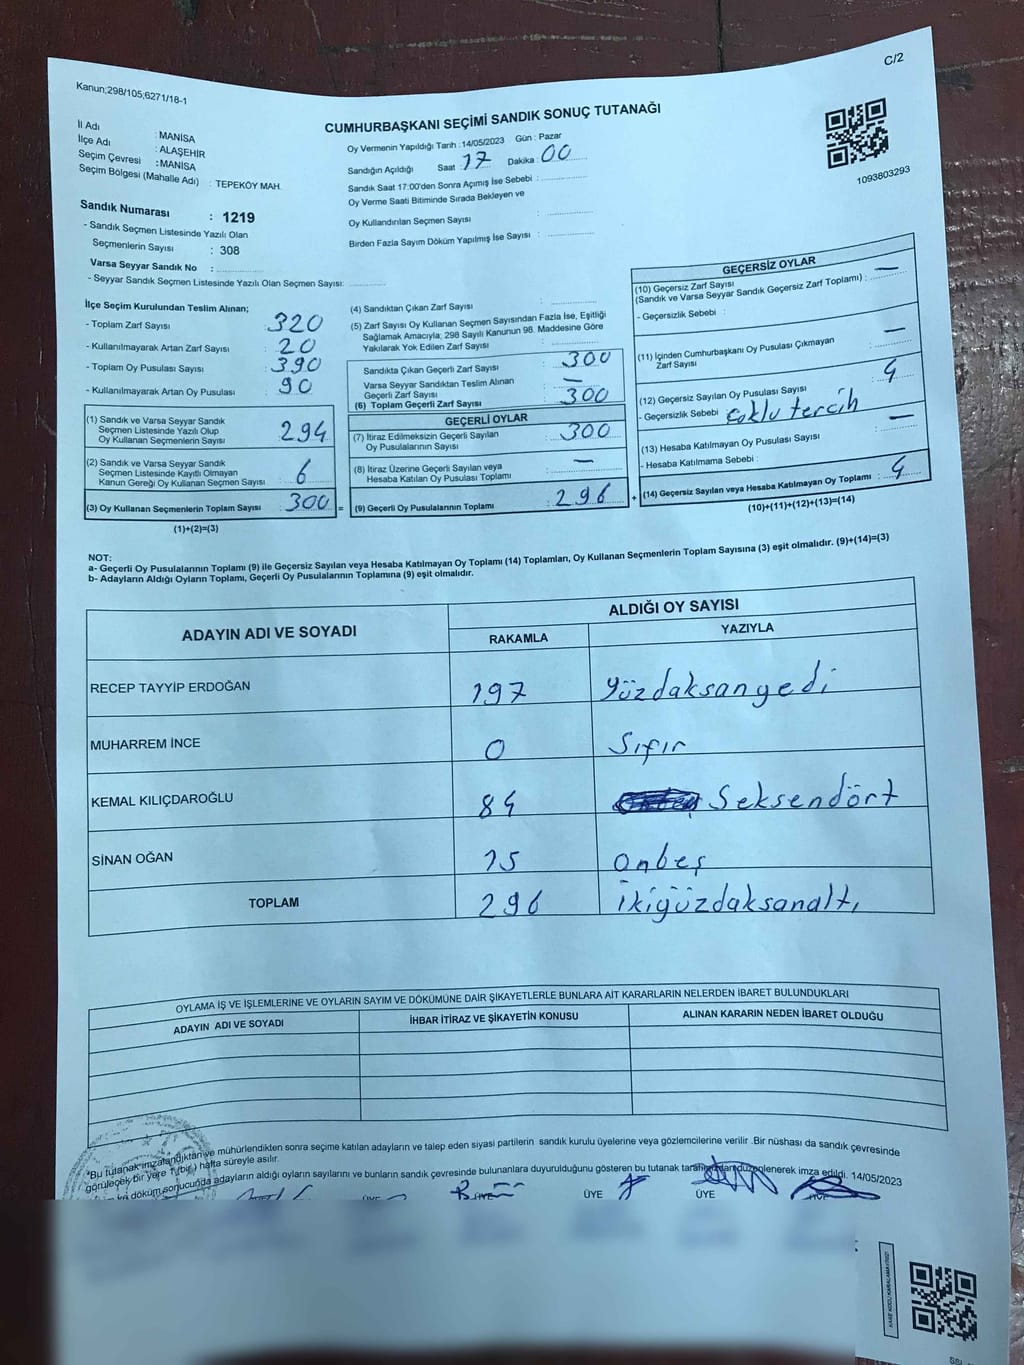 C/2
Kanun;298/105;6271/18-1
CUMHURBAŞKANI SEÇİMİ SANDIK SONUÇ TUTANAĞI
İl Adı : MANİSA
İlçe Adı : ALAŞEHİR
Seçim Çevresi : MANİSA
Seçim Bölgesi (Mahalle Adı) : TEPEKÖY MAH.
Sandık Numarası : 1219
- Sandık Seçmen Listesinde Yazılı Olan
Seçmenlerin Sayısı : 308
Varsa Seyyar Sandık No :
- Seyyar Sandık Seçmen Listesinde Yazılı Olan Seçmen Sayısı:
Oy Vermenin Yapıldığı Tarih : 14/05/2023 Gün : Pazar
Sandığın Açıldığı Saat : 17 Dakika : 00
Sandık Saat 17:00'den Sonra Açımış İse Sebebi :
Oy Verme Saati Bitiminde Sırada Bekleyen ve
Oy Kullandırılan Seçmen Sayısı :
Birden Fazla Sayım Döküm Yapılmış İse Sayısı :
1093803293
İlçe Seçim Kurulundan Teslim Alınan;
- Toplam Zarf Sayısı : 320
- Kullanılmayarak Artan Zarf Sayısı : 20
- Toplam Oy Pusulası Sayısı : 390
- Kullanılmayarak Artan Oy Pusulası : 90
(1) Sandık ve Varsa Seyyar Sandık
Seçmen Listesinde Yazılı Olup
Oy Kullanan Seçmenlerin Sayısı : 294
(2) Sandık ve Varsa Seyyar Sandık
Seçmen Listesinde Kayıtlı Olmayan
Kanun Gereği Oy Kullanan Seçmen Sayısı : 6
(3) Oy Kullanan Seçmenlerin Toplam Sayısı : 300 =
(1)+(2)=(3)
(4) Sandıktan Çıkan Zarf Sayısı :
(5) Zarf Sayısı Oy Kullanan Seçmen Sayısından Fazla İse, Eşitliği
Sağlamak Amacıyla; 298 Sayılı Kanunun 98. Maddesine Göre
Yakılarak Yok Edilen Zarf Sayısı :
Sandıkta Çıkan Geçerli Zarf Sayısı : 300
Varsa Seyyar Sandıktan Teslim Alınan
Geçerli Zarf Sayısı : —
(6) Toplam Geçerli Zarf Sayısı : 300
GEÇERLİ OYLAR
(7) İtiraz Edilmeksizin Geçerli Sayılan
Oy Pusulalarının Sayısı : 300
(8) İtiraz Üzerine Geçerli Sayılan veya
Hesaba Katılan Oy Pusulası Toplamı : —
(9) Geçerli Oy Pusulalarının Toplamı : 296 +
GEÇERSİZ OYLAR
(10) Geçersiz Zarf Sayısı
(Sandık ve Varsa Seyyar Sandık Geçersiz Zarf Toplamı) : —
- Geçersizlik Sebebi :
(11) İçinden Cumhurbaşkanı Oy Pusulası Çıkmayan
Zarf Sayısı : —
(12) Geçersiz Sayılan Oy Pusulası Sayısı : 4
- Geçersizlik Sebebi : Çoklu tercih
(13) Hesaba Katılmayan Oy Pusulası Sayısı : —
- Hesaba Katılmama Sebebi :
(14) Geçersiz Sayılan veya Hesaba Katılmayan Oy Toplamı : 4
(10)+(11)+(12)+(13)=(14)
NOT:
a- Geçerli Oy Pusulalarının Toplamı (9) ile Geçersiz Sayılan veya Hesaba Katılmayan Oy Toplamı (14) Toplamları, Oy Kullanan Seçmenlerin Toplam Sayısına (3) eşit olmalıdır. (9)+(14)=(3)
b- Adayların Aldığı Oyların Toplamı, Geçerli Oy Pusulalarının Toplamına (9) eşit olmalıdır.
ADAYIN ADI VE SOYADI ALDIĞI OY SAYISI
RAKAMLA YAZIYLA
RECEP TAYYİP ERDOĞAN 197 yüzdaksanyedi
MUHARREM İNCE 0 Sıfır
KEMAL KILIÇDAROĞLU 84 Seksendört
SİNAN OĞAN 15 onbeş
TOPLAM 296 ikiyüzdaksanaltı
OYLAMA İŞ VE İŞLEMLERİNE VE OYLARIN SAYIM VE DÖKÜMÜNE DAİR ŞİKAYETLERLE BUNLARA AİT KARARLARIN NELERDEN İBARET BULUNDUKLARI
ADAYIN ADI VE SOYADI İHBAR İTİRAZ VE ŞİKAYETİN KONUSU ALINAN KARARIN NEDEN İBARET OLDUĞU
*Bu tutanak imzalandıktan ve mühürlendikten sonra seçime katılan adayların ve talep eden siyasi partilerin sandık kurulu üyelerine veya gözlemcilerine verilir .Bir nüshası da sandık çevresinde
görülecek bir yere 1 (bir) hafta süreyle asılır.
döküm sonucunda adayların aldığı oyların sayılarını ve bunların sandık çevresinde bulunanlara duyurulduğunu gösteren bu tutanak tarafımızdan düzenlenerek imza edildi. 14/05/2023
ÜYE ÜYE ÜYE ÜYE ÜYE